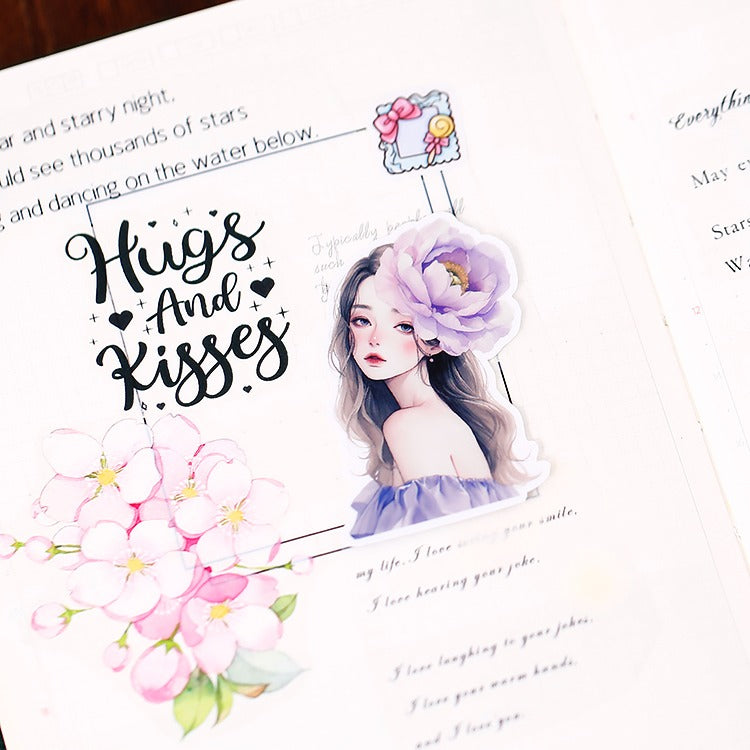 ar and starry night.
uld see thousands of stars
g and dancing on the water below.
Hugs
And
Kisses
Typically
such
my life. I love seeing your smile.
I love hearing your joke.
I love laughing to your jokes.
I love your warm hands.
and I love you.
Everythin
May e
Stars
Wa
12